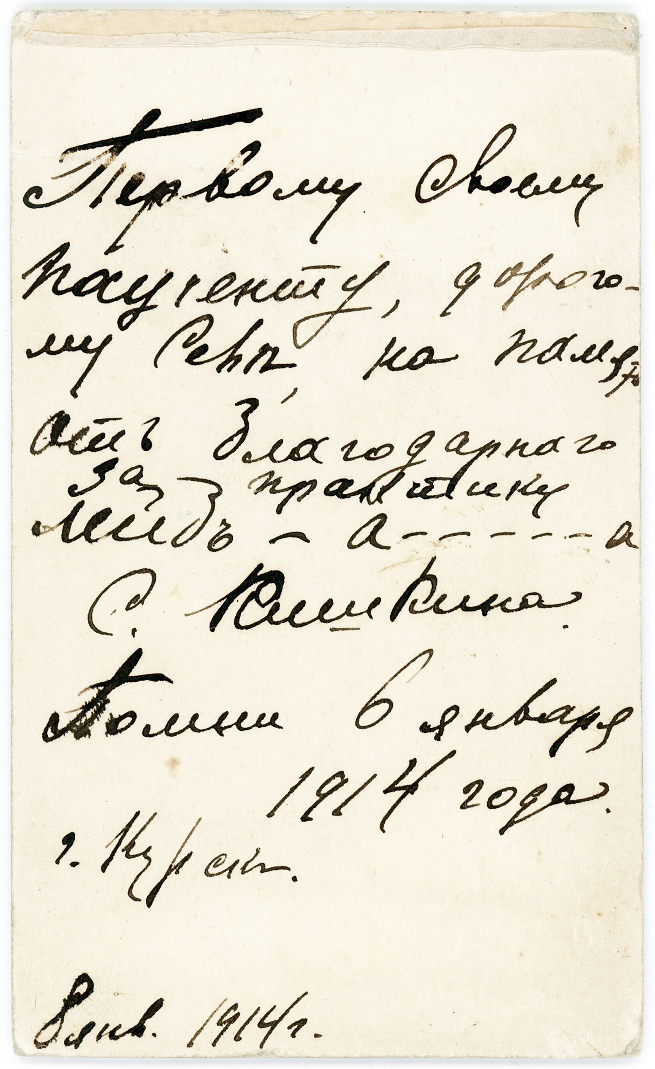 Первому своему
пациенту, дорого-
му Сенѣ, на память
отъ благодарнаго
за практику
Мидъ - а - - - - - - а
С. Юшкина.
Помни 6 января
1914 года.
г. Курскъ.
8 янв. 1914 г.